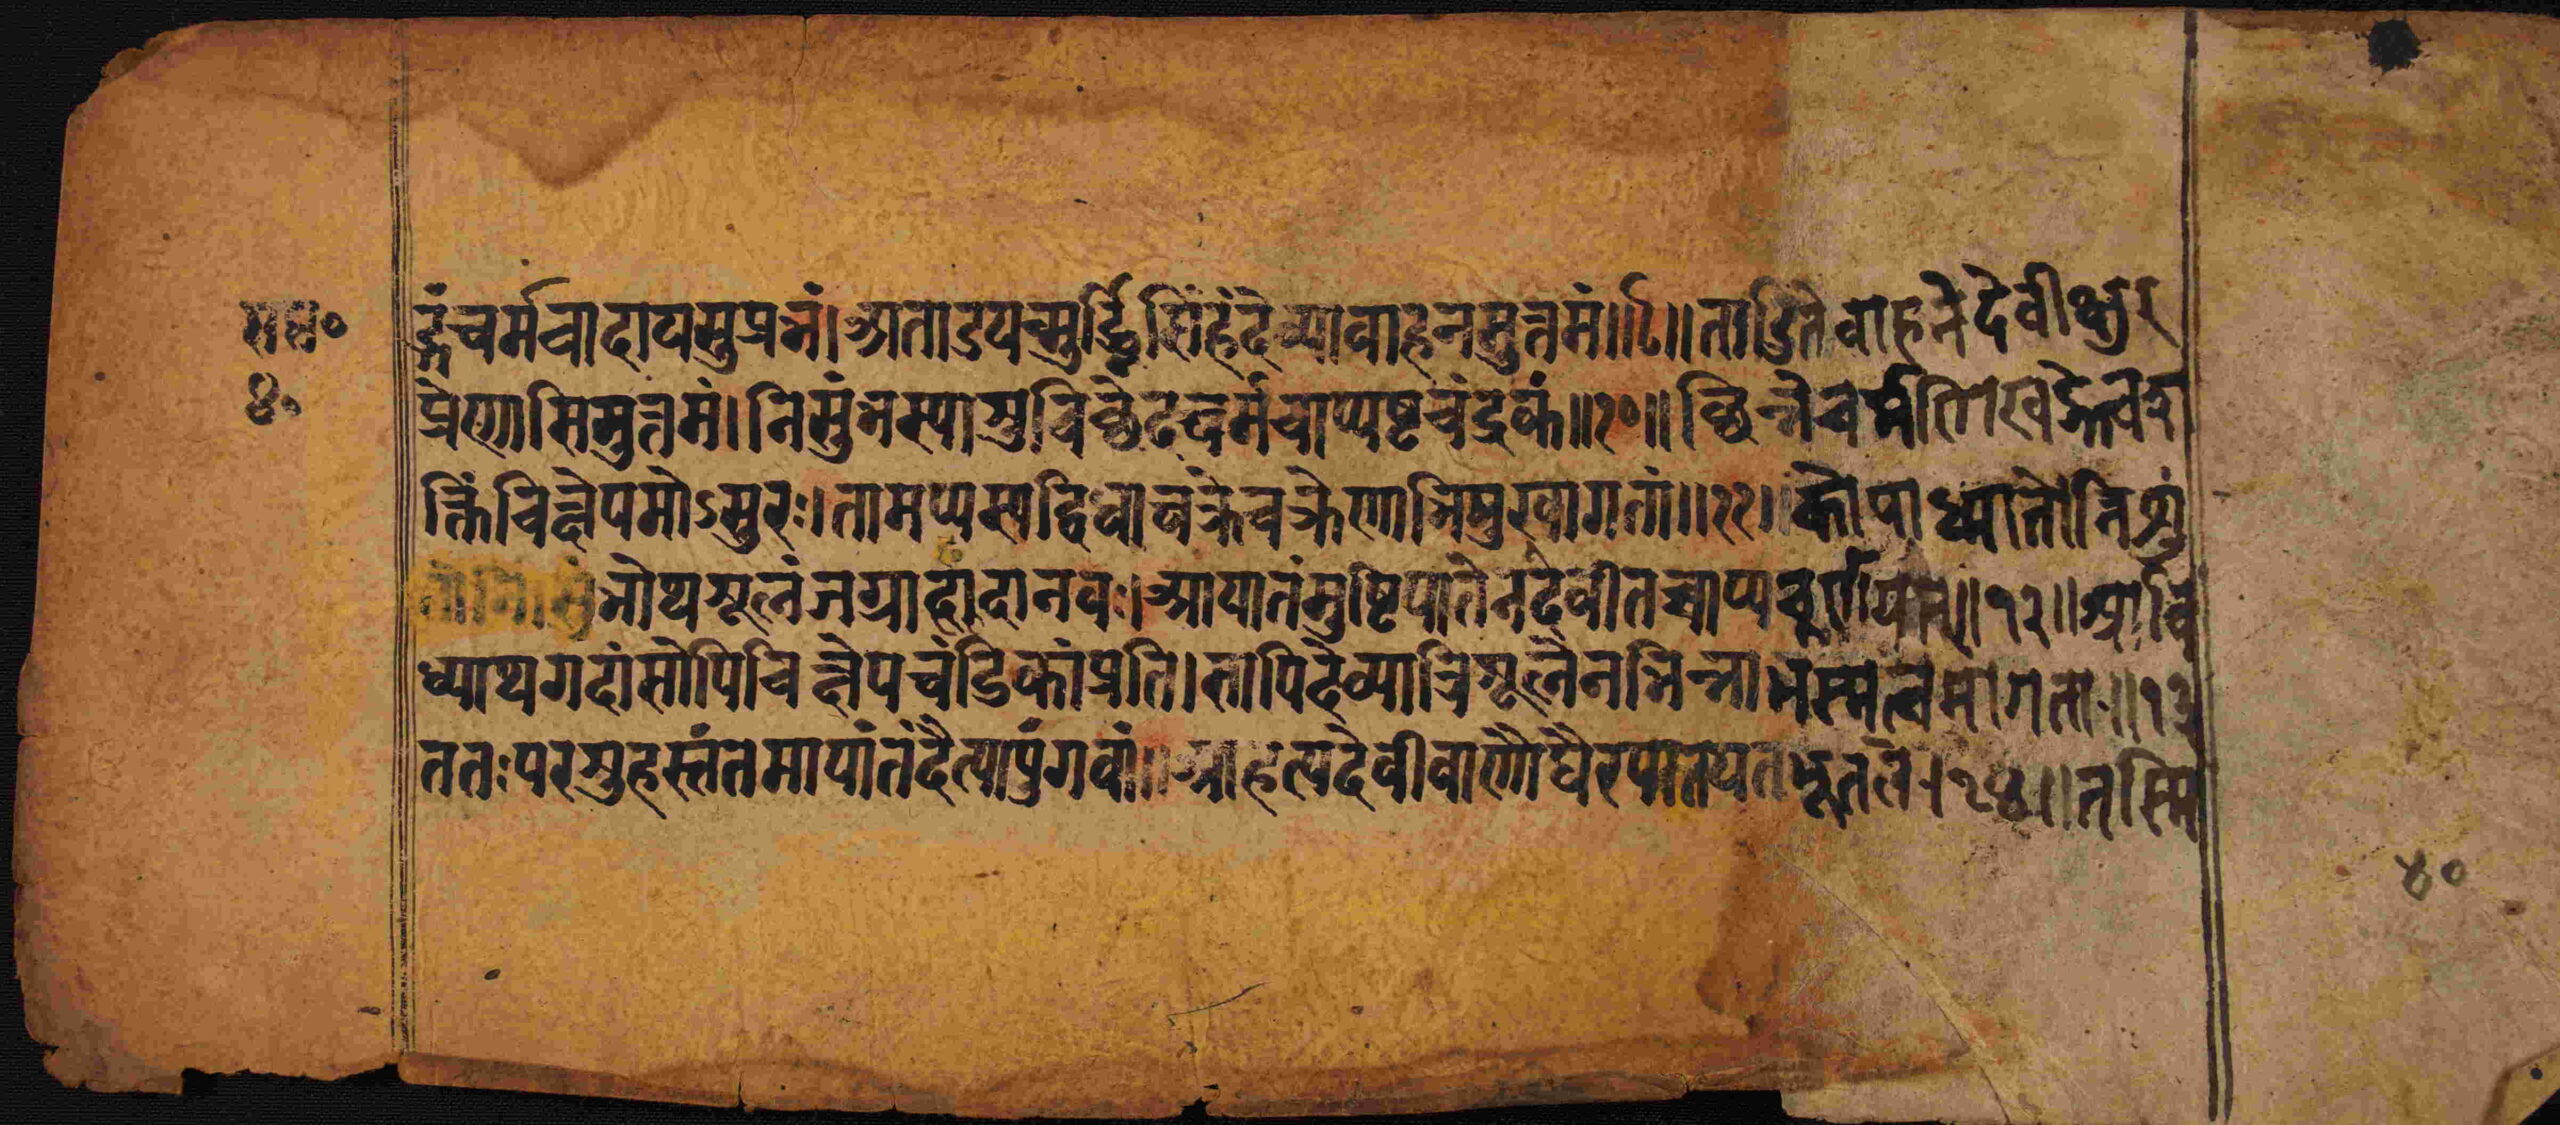 सस॰
४॰
ड्गंचर्मचादायसुप्रभं।अताडयन्मुर्द्ध्निसिंहंदेव्यावाहनमुत्तमं॥९॥ताडितेवाहनेदेवीक्षुर
प्रेणासिमुत्तमं।निसुंभस्याशुचिच्छेदचर्मचाप्यष्टचंद्रकं॥१०॥छिन्नेचर्मणिखड्गेचश
क्तिंचिक्षेपसोऽसुरः।तामप्यस्यद्विधाचक्रेचक्रेणाभिमुखागतां॥११॥कोपाध्मातोनिशुं
भोथशूलंजग्राहदानवः।आयातंमुष्टिपातेनदेवीतच्चाप्यचूर्णयत्॥१२॥आवि
ध्याथगदांसोपिचिक्षेपचंडिकांप्रति।सापिदेव्यात्रिशूलेनभिन्नाभस्मत्वमागताः॥१३
ततःपरशुहस्तंतमायांतंदैत्यापुंगवां॥आहत्यदेवीबाणौघैरपातयतभूतले।१४॥तस्मि
४०